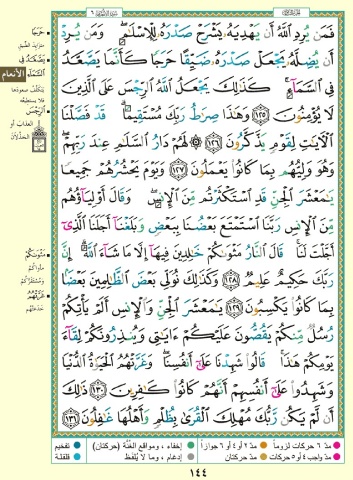 فَمَن يُرِدِ ٱللَّهُ أَن يَهْدِيَهُۥ يَشْرَحْ صَدْرَهُۥ لِلْإِسْلَـٰمِ ۖ وَمَن يُرِدْ
أَن يُضِلَّهُۥ يَجْعَلْ صَدْرَهُۥ ضَيِّقًا حَرَجًا كَأَنَّمَا يَصَّعَّدُ
فِى ٱلسَّمَآءِ ۚ كَذَٰلِكَ يَجْعَلُ ٱللَّهُ ٱلرِّجْسَ عَلَى ٱلَّذِينَ
لَا يُؤْمِنُونَ ١٢٥ وَهَـٰذَا صِرَٰطُ رَبِّكَ مُسْتَقِيمًا ۗ قَدْ فَصَّلْنَا
ٱلْـَٔايَـٰتِ لِقَوْمٍ يَذَّكَّرُونَ ١٢٦ ۞ لَهُمْ دَارُ ٱلسَّلَـٰمِ عِندَ رَبِّهِمْ ۖ
وَهُوَ وَلِيُّهُم بِمَا كَانُوا۟ يَعْمَلُونَ ١٢٧ وَيَوْمَ يَحْشُرُهُمْ جَمِيعًا
يَـٰمَعْشَرَ ٱلْجِنِّ قَدِ ٱسْتَكْثَرْتُم مِّنَ ٱلْإِنسِ ۖ وَقَالَ أَوْلِيَآؤُهُم
مِّنَ ٱلْإِنسِ رَبَّنَا ٱسْتَمْتَعَ بَعْضُنَا بِبَعْضٍ وَبَلَغْنَآ أَجَلَنَا ٱلَّذِىٓ
أَجَّلْتَ لَنَا ۚ قَالَ ٱلنَّارُ مَثْوَىٰكُمْ خَـٰلِدِينَ فِيهَآ إِلَّا مَا شَآءَ ٱللَّهُ ۗ إِنَّ
رَبَّكَ حَكِيمٌ عَلِيمٌ ١٢٨ وَكَذَٰلِكَ نُوَلِّى بَعْضَ ٱلظَّـٰلِمِينَ بَعْضًۢا
بِمَا كَانُوا۟ يَكْسِبُونَ ١٢٩ يَـٰمَعْشَرَ ٱلْجِنِّ وَٱلْإِنسِ أَلَمْ يَأْتِكُمْ
رُسُلٌ مِّنكُمْ يَقُصُّونَ عَلَيْكُمْ ءَايَـٰتِى وَيُنذِرُونَكُمْ لِقَآءَ
يَوْمِكُمْ هَـٰذَا ۚ قَالُوا۟ شَهِدْنَا عَلَىٰٓ أَنفُسِنَا ۖ وَغَرَّتْهُمُ ٱلْحَيَوٰةُ ٱلدُّنْيَا
وَشَهِدُوا۟ عَلَىٰٓ أَنفُسِهِمْ أَنَّهُمْ كَانُوا۟ كَـٰفِرِينَ ١٣٠ ذَٰلِكَ
أَن لَّمْ يَكُن رَّبُّكَ مُهْلِكَ ٱلْقُرَىٰ بِظُلْمٍ وَأَهْلُهَا غَـٰفِلُونَ ١٣١
حَرَجًا
متزايد الضيق
يَصَّعَّدُ فِي
السَّمَاءِ
الأنعام
يتكلف صعودها
فلا يستطيعه
الرِّجْسَ
العذاب أو
الخذلان
مَثْوَاكُمْ
مأواكم
ومستقركم
غَرَّتْهُمُ
خدعتهم
مدّ ٦ حركات لزوماً
مدّ ٢ أو ٤ أو ٦ جوازاً
إخفاء، ومواقع الغنّة (حركتان)
تفخيم
مدّ واجب ٤ أو ٥ حركات
مدّ حركتان
إدغام، وما لا يُلفظ
قلقلة
١٤٤